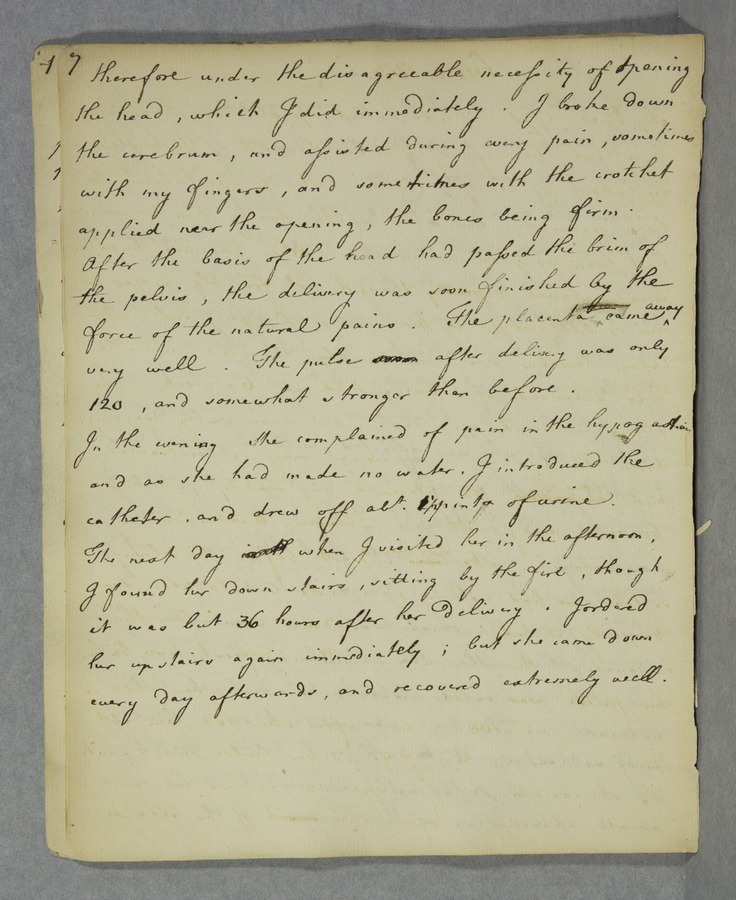 7
therefore under the disagreeable necessity of opening
the head, which I did immediately. I broke down
the cerebrum, and assisted during every pain, sometimes
with my fingers, and sometimes with the crotchet
applied near the opening, the bones being firm.
After the basis of the head had passed the brim of
the pelvis, the delivery was soon finished by the
force of the natural pains. The placenta came away
very well. The pulse after delivery was only
120, and somewhat stronger than before.
In the evening she complained of pain in the hypogastrium
and as she had made no water, I introduced the
catheter, and drew off abt. pints of urine.
The next day when I visited her in the afternoon,
I found her down stairs, sitting by the fire, though
it was but 36 hours after her delivery. I ordered
her up stairs again immediately; but she came down
every day afterwards, and recovered extremely well.